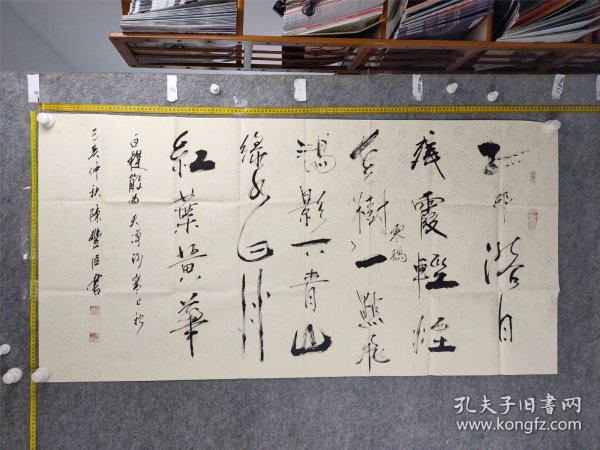 孤邨落日
殘霞輕煙
老樹一點飛
寒鴉
鴻影下青山
綠水白艸
紅葉黃華
白樸散曲天淨沙
己亥仲秋陳豐書
孔夫子旧书网
www.kongfz.com